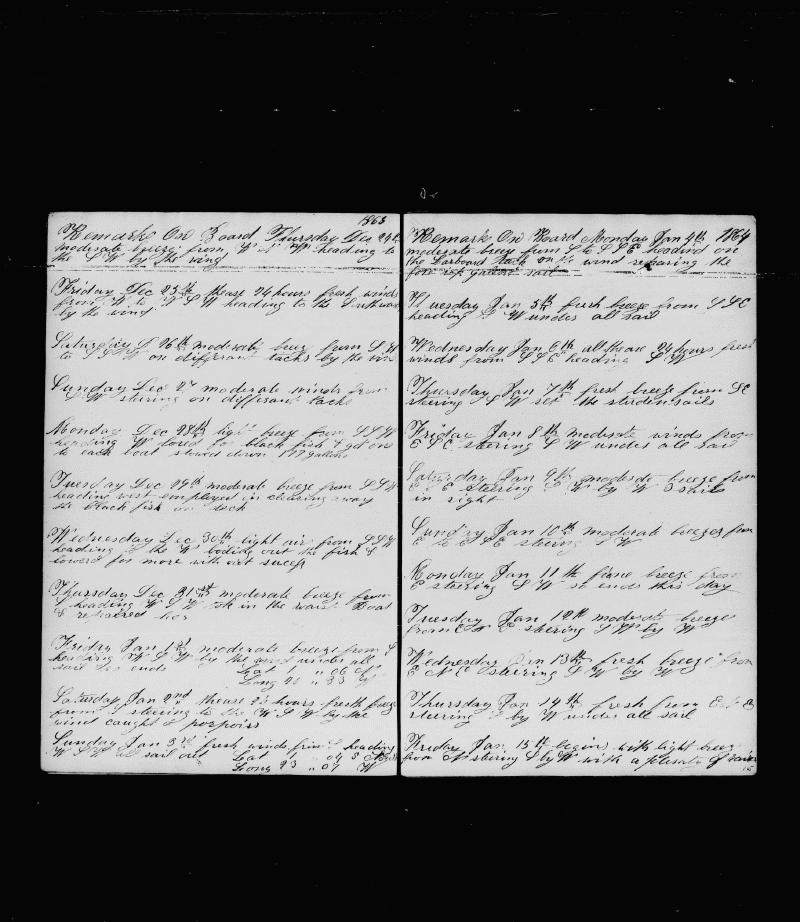 1863
Remarks On Board Thursday Dec 24th
moderate breeze from W N W heading to
the S W by the wind
Friday Dec 25th thease 24 hours fresh winds
from W to W S W heading to the Southward
by the wind
Saturday D 26th moderate breez from S W
to S S W on differant tacks by the win
Sunday Dec 27 moderate winds from
S W stering on differant tacks
Monday Dec 28th light breez from S S W
heading W for black fish & got one
to each boat stowed down 177 gallons
Tuesday Dec 29th moderate breeze from S S W
heading west employed in clearing away
the black fish on deck
Wednesday Dec 30th light airs from S S W
heading to the W boiling out the fish &
lowerd for more with out sucess
Thursday Dec 31st moderate breeze from
S heading W S W took in the waist Boat
& repaired her
Friday Jan 1st moderate breeze from S
heading W S W by the wind under all
sail so ends Lat 1 " 06
Long 22 " 33 W
Saturday Jan 2nd thease 24 hours fresh breeze
from S steering to the W S W by the
wind caught 2 porpoiss
Sunday Jan 3rd fresh winds from S heading
W S W all sail out Lat " 04 S
Long 23 " 07 W
Remarks On Board Monday Jan 4th 1864
moderate breez from S to S S E heading on
the Larboard tack on the wind repairing the
fore top gallant sail
Tuesday Jan 5th fresh breeze from S S E
heading S W under all sail
Wednesday Jan 6th all thease 24 hours fresh
winds from S S E heading S W
Thursday Jan 7th fresh breeze from SE
steering S W set the studensails
Friday Jan 8th moderate winds from
E S E steering S W under all sail
Saturday Jan 9th moderate breeze from
E S E steering S W by W 3 ships
in sight
Sunday Jan 10th moderate breezes from
E to E S E steering S W
Monday Jan 11th fiane breeze from
E steering S W so ends this day
Tuesday Jan 12th moderate breeze
from E N E steering S W by W
Wednesday Jan 13th fresh breeze from
E N E steering S W by W
Thursday Jan 14th fresh from
steering S by W under all sail
Friday Jan 15th begins with light breez
from N stering S by W with a plesate of rain